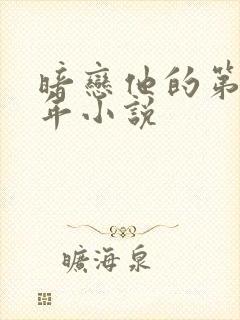 暗戀他的第
年小說
曠海泉